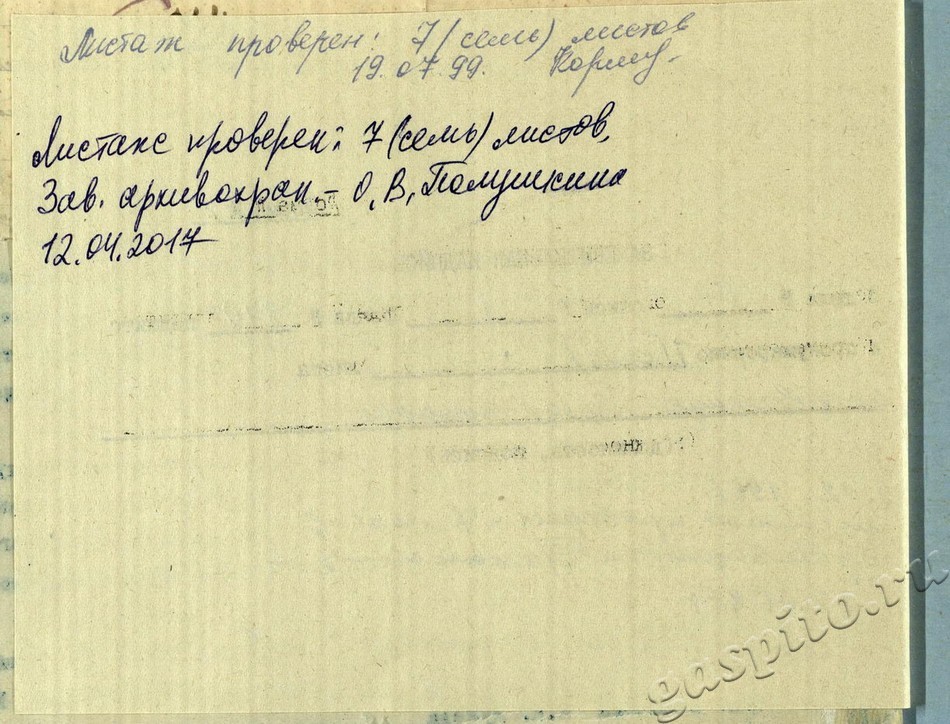 Листаж проверен: 7 (семь) листов
19.07.99.
Листаж проверен: 7 (семь) листов.
Зав. архивохран. – О.В. Полушкина
12.04.2017
gaspito.ru